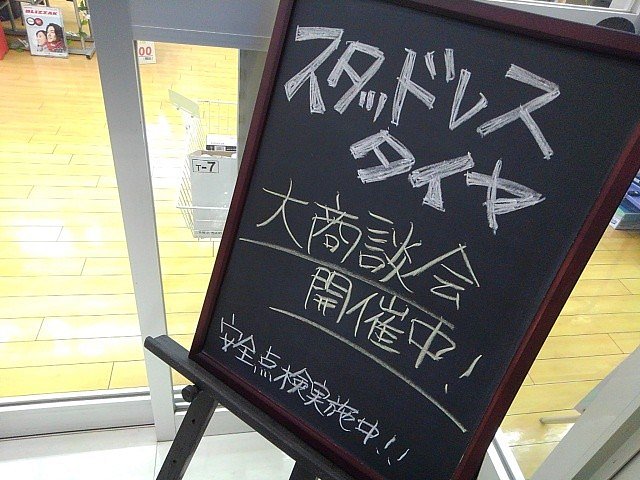 BLIZZAK
00
T-7
スタッドレス
タイヤ
大商談会
開催中!
安全点検実施中!!